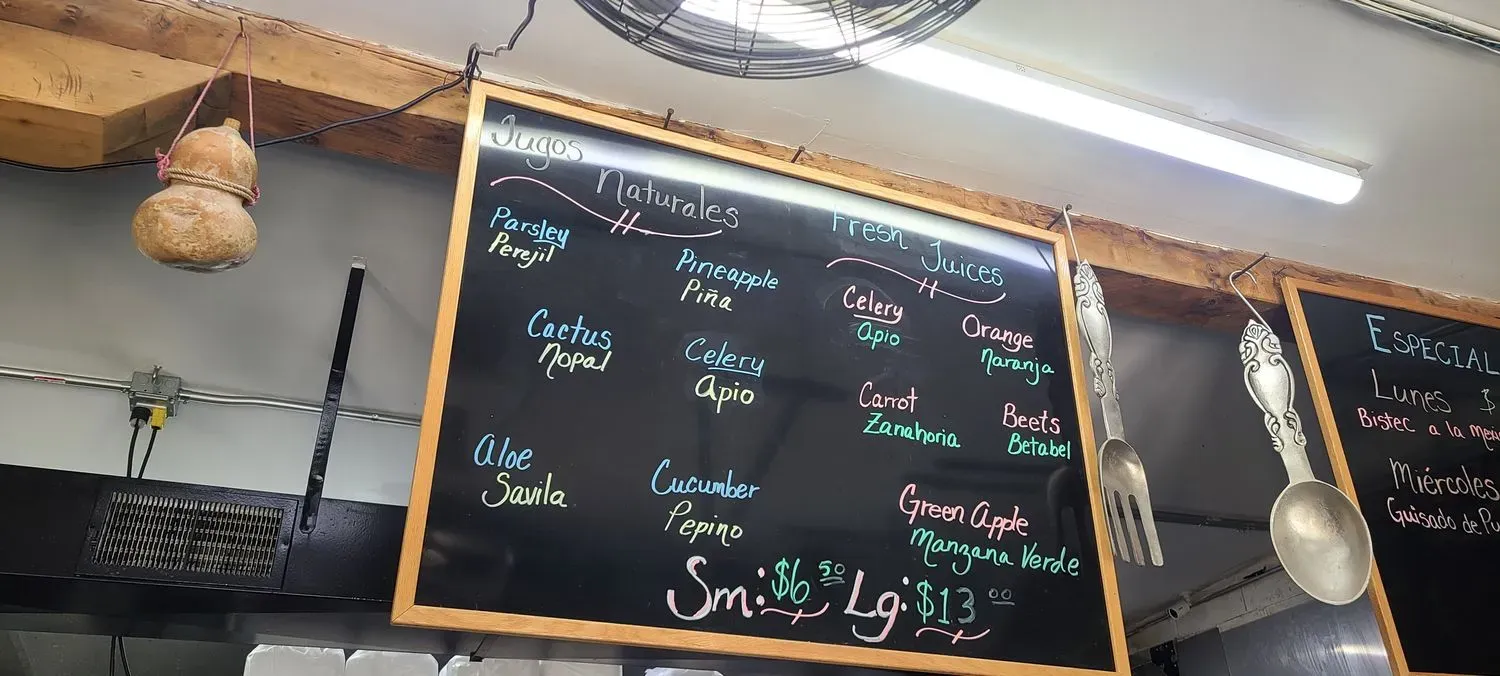 Jugos
Naturales
Parsley
Perejil
Pineapple
Piña
Cactus
Nopal
Celery
Apio
Aloe
Savila
Cucumber
Pepino
Fresh Juices
Celery
Apio
Orange
Naranja
Carrot
Zanahoria
Beets
Betabel
Green Apple
Manzana Verde
Sm: $6.50 Lg: $13.00
ESPECIAL
Lunes $
Bistec a la
Miércoles
Guisado de